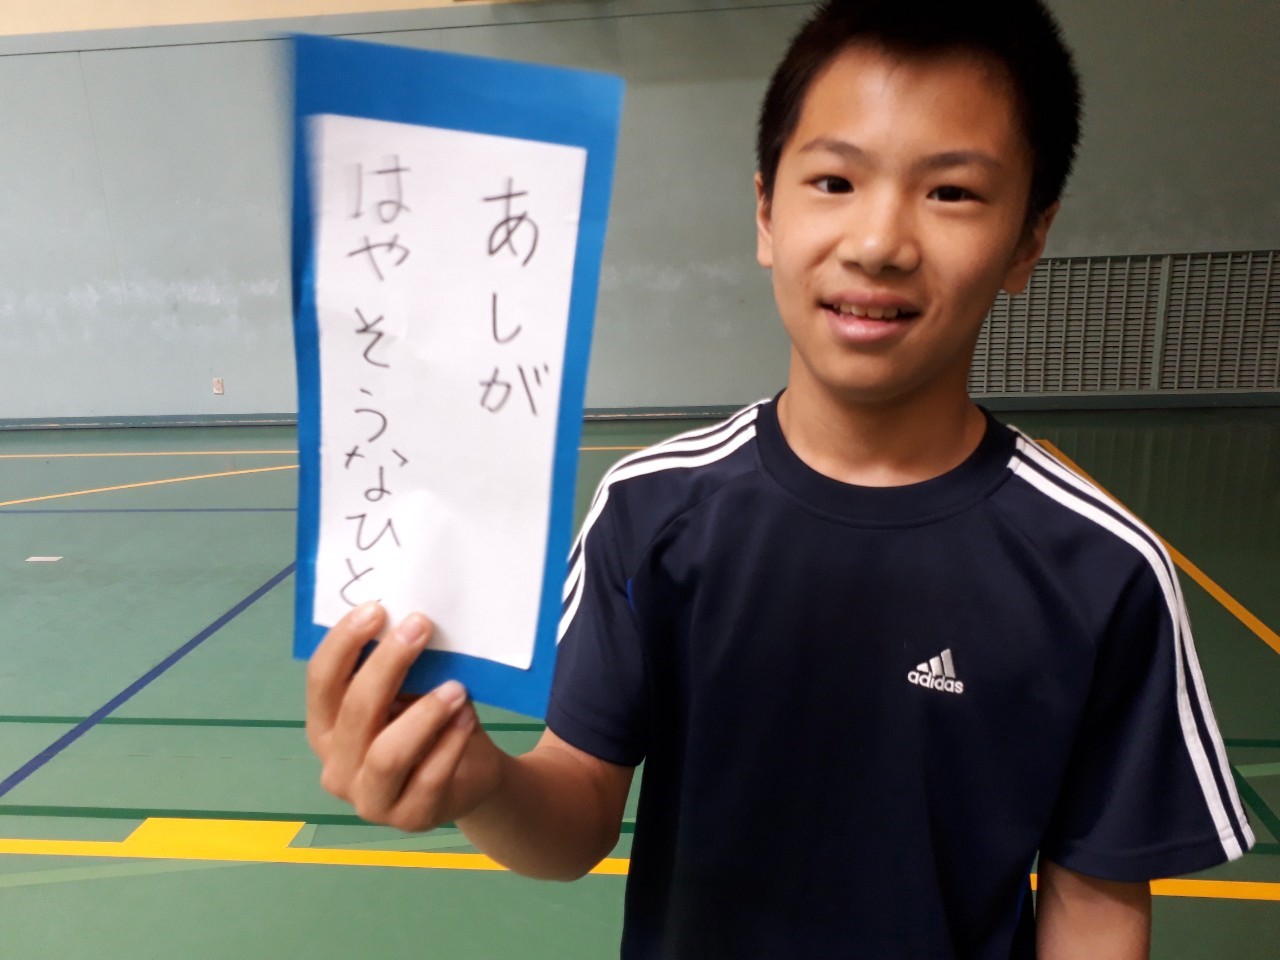 あしが
はやそうなひと
adidas